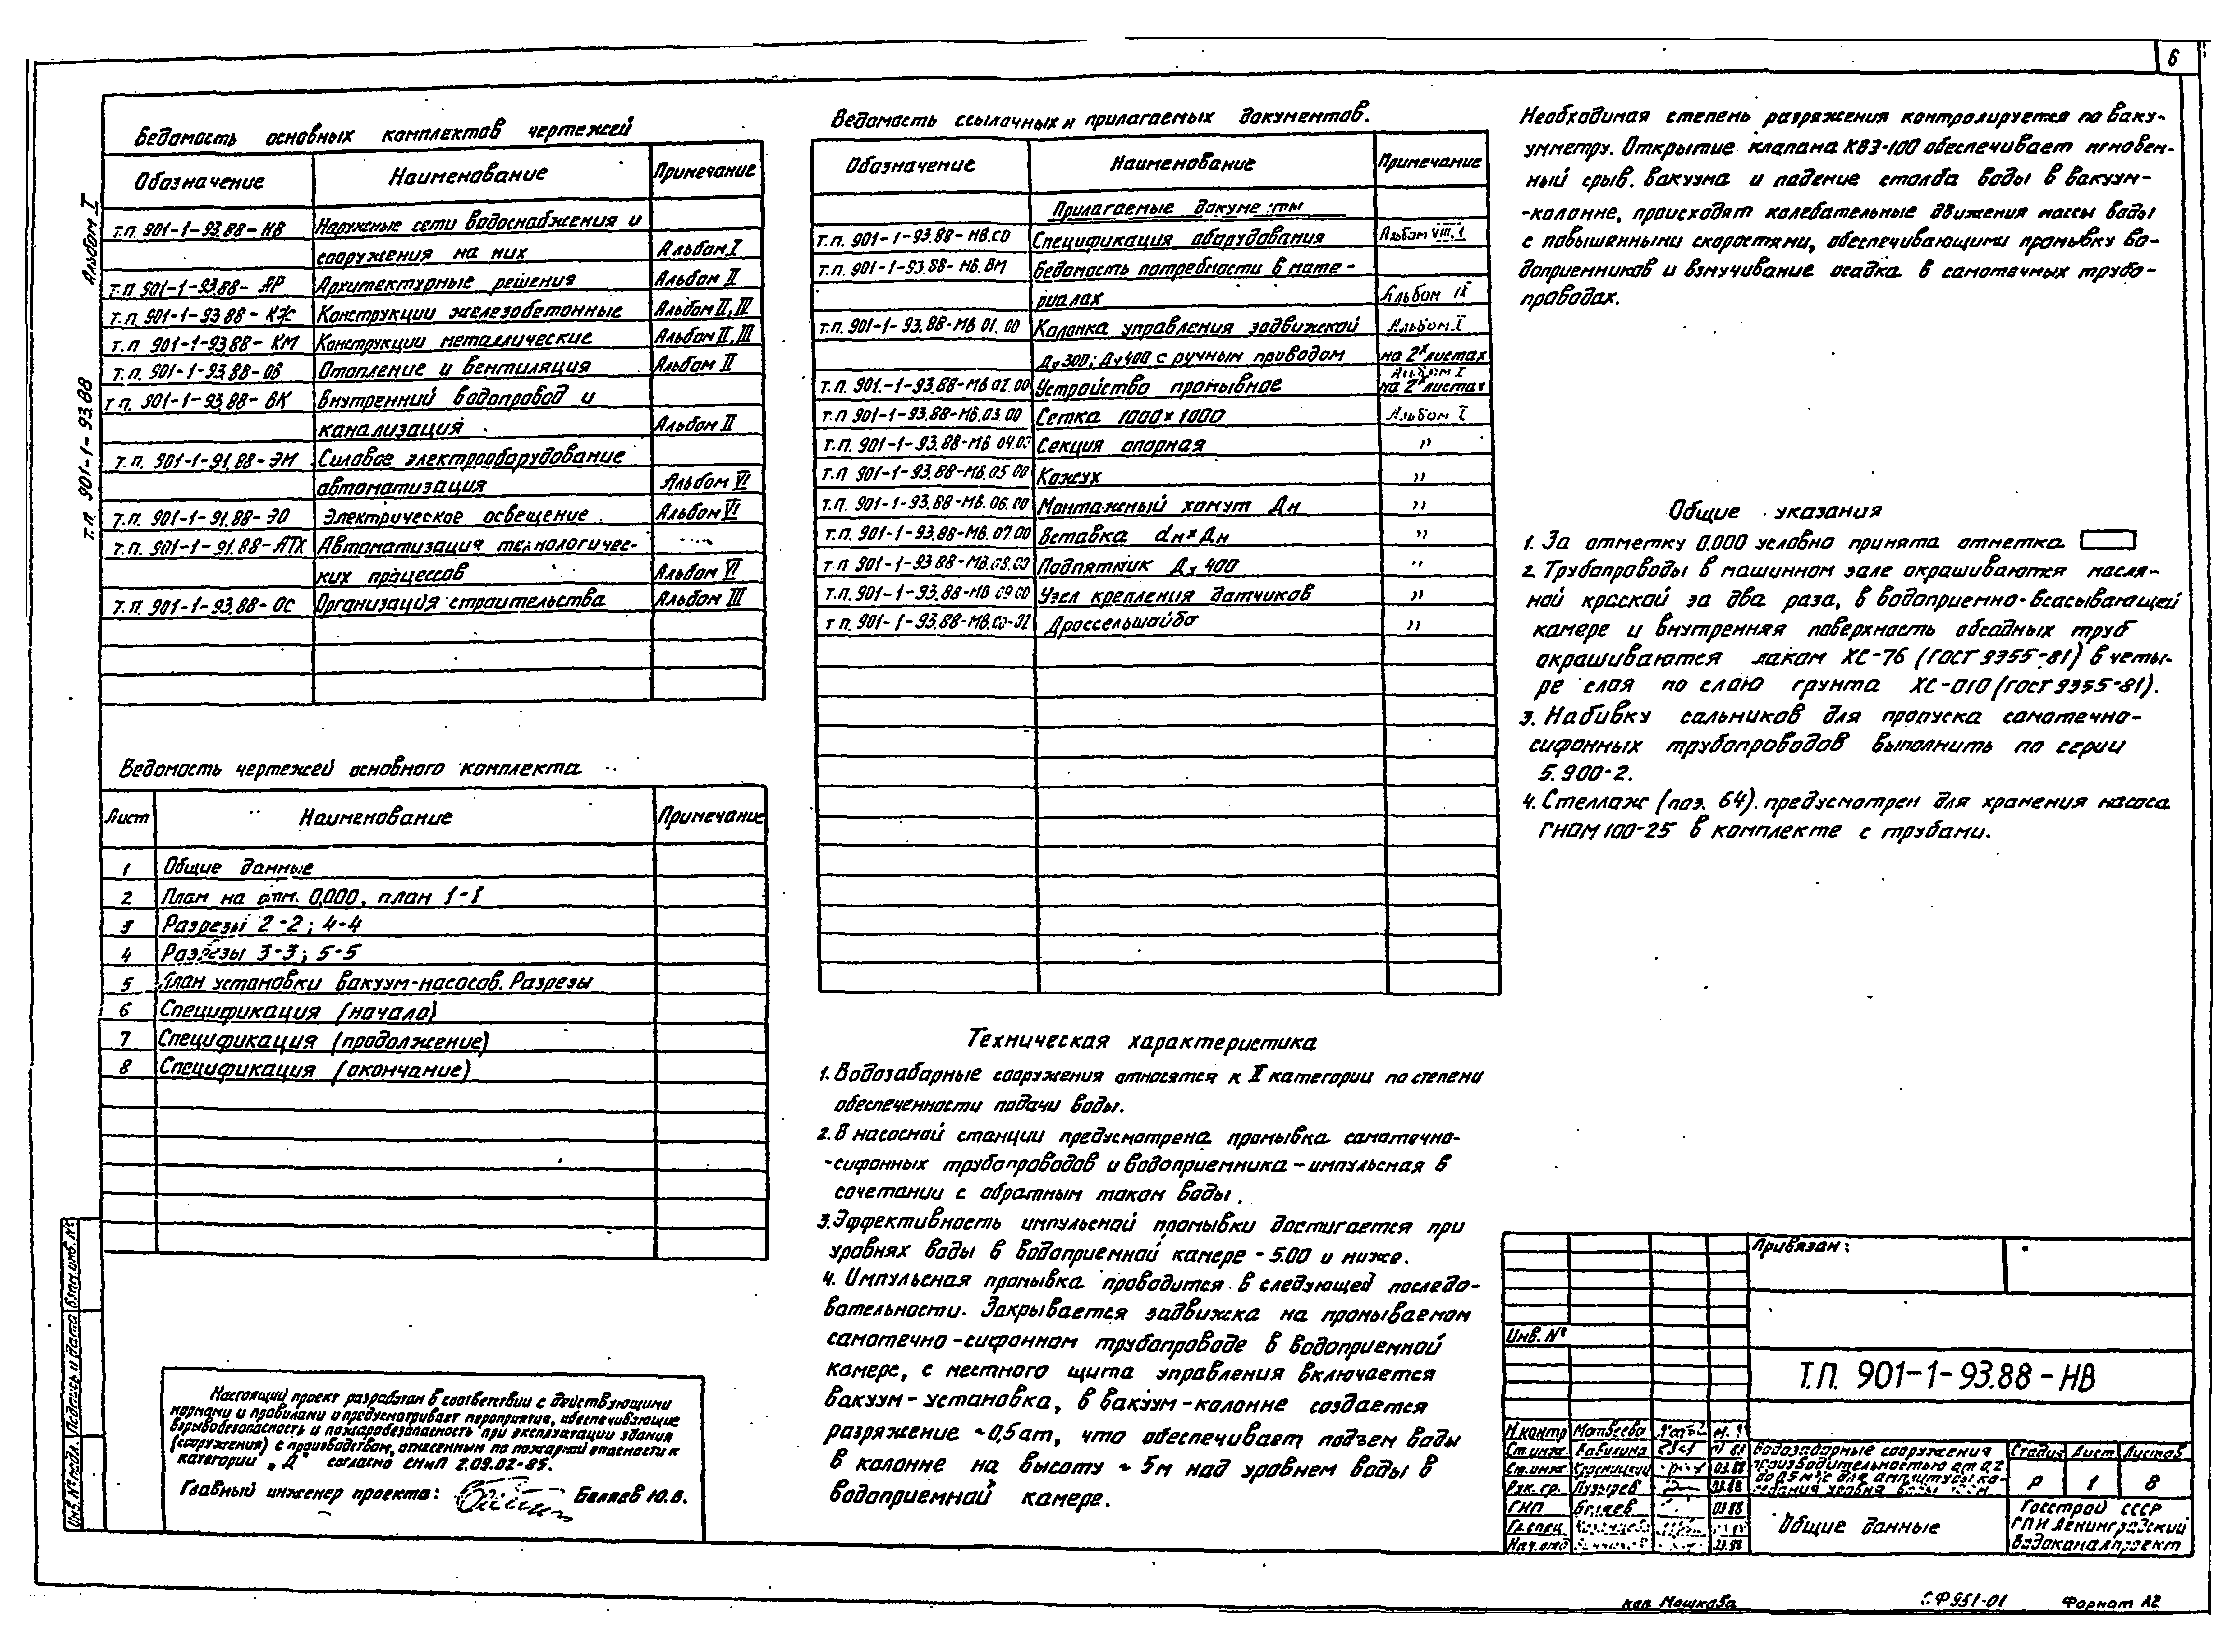 6
Альбом I
т.п. 901-1-93.88
Ведомость основных комплектов чертежей
Обозначение Наименование Примечание
т.п. 901-1-93.88-НВ Наружные сети водоснабжения и
сооружения на них Альбом I
т.п 901-1-93.88-АР Архитектурные решения Альбом II
т.п. 901-1-93.88-КЖ Конструкции железобетонные Альбом II, III
т.п 901-1-93.88-КМ Конструкции металлические Альбом II, III
т.п. 901-1-93.88-ОВ Отопление и вентиляция Альбом II
т.п. 901-1-93.88-ВК Внутренний водопровод и
канализация Альбом II
т.п. 901-1-91.88-ЭМ Силовое электрооборудование
автоматизация Альбом VI
т.п. 901-1-91.88-ЭО Электрическое освещение Альбом VI
т.п. 901-1-91.88-АТХ Автоматизация технологичес-
ких процессов Альбом VI
т.п. 901-1-93.88-ОС Организация строительства Альбом III
Ведомость чертежей основного комплекта
Лист Наименование Примечание
1 Общие данные
2 План на отм. 0.000, план 1-1
3 Разрезы 2-2; 4-4
4 Разрезы 3-3; 5-5
5 План установки вакуум-насосов. Разрезы
6 Спецификация (начало)
7 Спецификация (продолжение)
8 Спецификация (окончание)
Настоящий проект разработан в соответствии с действующими
нормами и правилами и предусматривает мероприятия, обеспечивающие
взрывобезопасность и пожаробезопасность при эксплуатации здания
(сооружения) с производством, отнесенным по пожарной опасности к
категории „Д“ согласно СНиП 2.09.02-85.
Главный инженер проекта: Беляев Ю.В.
Инв. № подл. Подпись и дата Взам. инв. №
Ведомость ссылочных и прилагаемых документов.
Обозначение Наименование Примечание
Прилагаемые документы
т.п. 901-1-93.88-НВ.СО Спецификация оборудования Альбом VIII.1
т.п. 901-1-93.88-НВ.ВМ Ведомость потребности в мате-
риалах Альбом IX
т.п. 901-1-93.88-МВ 01.00 Колонка управления задвижкой Альбом I
Ду 300; Ду 400 с ручным приводом на 2х листах
т.п. 901-1-93.88-МВ 02.00 Устройство промывное Альбом I на 2х листах
т.п 901-1-93.88-МВ.03.00 Сетка 1000×1000 Альбом I
т.п. 901-1-93.88-МВ 04.00 Секция опорная "
т.п 901-1-93.88-МВ.05 00 Кожух "
т.п. 901-1-93.88-МВ.06.00 Монтажный хомут Дн "
т.п. 901-1-93.88-МВ.07.00 Вставка dн×Дн "
т.п 901-1-93.88-МВ.08.00 Подпятник Ду 400 "
т.п. 901-1-93.88-МВ 09 00 Узел крепления датчиков "
т п. 901-1-93.88-МВ.00-02 Дроссельшайба "
Техническая характеристика
1. Водозаборные сооружения относятся к II категории по степени
обеспеченности подачи воды.
2. В насосной станции предусмотрена промывка самотечно-
-сифонных трубопроводов и водоприемника - импульсная в
сочетании с обратным током воды.
3. Эффективность импульсной промывки достигается при
уровнях воды в водоприемной камере - 5.00 и ниже.
4. Импульсная промывка проводится в следующей последо-
вательности. Закрывается задвижка на промываемом
самотечно-сифонном трубопроводе в водоприемной
камере, с местного щита управления включается
вакуум-установка, в вакуум-колонне создается
разряжение ~0,5 ат, что обеспечивает подъем воды
в колонне на высоту ~ 5м над уровнем воды в
водоприемной камере.
Необходимая степень разряжения контролируется по ваку-
умметру. Открытие клапана КВЭ-100 обеспечивает мгновен-
ный срыв. вакуума и падение столба воды в вакуум-
-колонне, происходят колебательные движения массы воды
с повышенными скоростями, обеспечивающими промывку во-
доприемников и взмучивание осадка в самотечных трубо-
проводах.
Общие указания
1. За отметку 0.000 условно принята отметка
2. Трубопроводы в машинном зале окрашиваются масля-
ной краской за два раза, в водоприемно-всасывающей
камере и внутренняя поверхность обсадных труб
окрашиваются лаком ХС-76 (ГОСТ 9355-81) в четы-
ре слоя по слою грунта ХС-010 (ГОСТ 9355-81).
3. Набивку сальников для пропуска самотечно-
сифонных трубопроводов выполнить по серии
5.900-2.
4. Стеллаж (поз. 64). предусмотрен для хранения насоса
ГНОМ 100-25 в комплекте с трубами.
Привязан:
Инв. №
Т.П. 901-1-93.88-НВ
Н.контр Матвеева
Ст.инж. Бабилина
Ст.инж 03.88
Рук. гр. Пузырев 03.88
ГИП Беляев 03.88
Гл.спец
Нач.отд 03.88
Водозаборные сооружения
производительностью от 0,2
до 0,5 м³/с для амплитуды ко-
лебания уровня воды
Стадия Лист Листов
Р 1 8
Общие данные
Госстрой СССР
ГПИ Ленинградский
Водоканалпроект
коп Машкова
СФ951-01
Формат А2